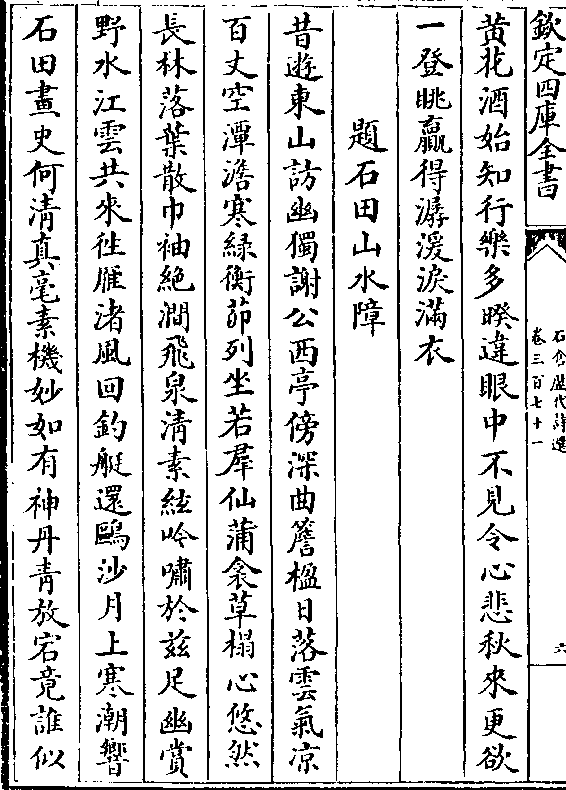 欽定四庫全書
石倉歷代詩選
卷三百七十一
六
黄花酒始知行樂多暌違眼中不見令心悲秋來更欲
一登眺贏得潺湲淚滿衣
題石田山水障
昔遊東山訪幽獨謝公西亭傍深曲簷楹日落雲氣凉
百丈空潭澹寒緑衡茆列坐若羣仙蒲衾草榻心悠然
長林落葉散巾袖絶澗飛泉清素絃吟嘯於兹足幽賞
野水江雲共來往雁渚風回釣艇還鷗沙月上寒潮響
石田畫史何清真毫素機妙如有神丹青放宕竟誰似